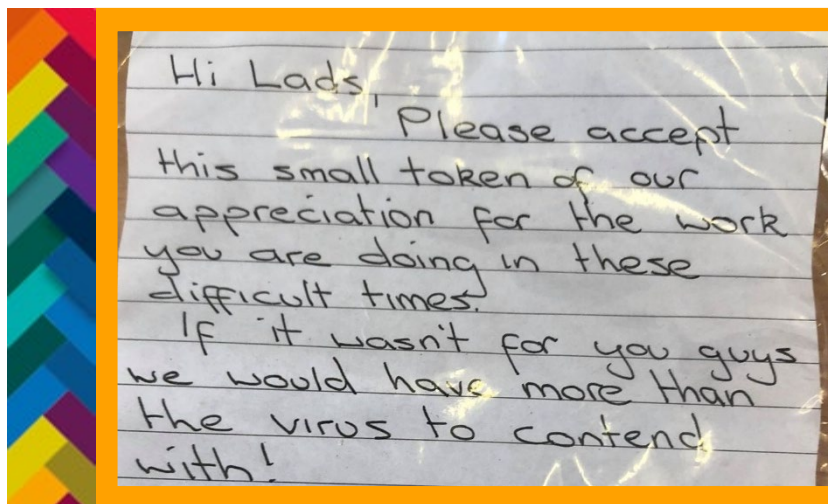 Hi Lads,
Please accept
this small token of our
appreciation for the work
you are doing in these
difficult times.
If it wasn't for you guys
we would have more than
the virus to contend
with!